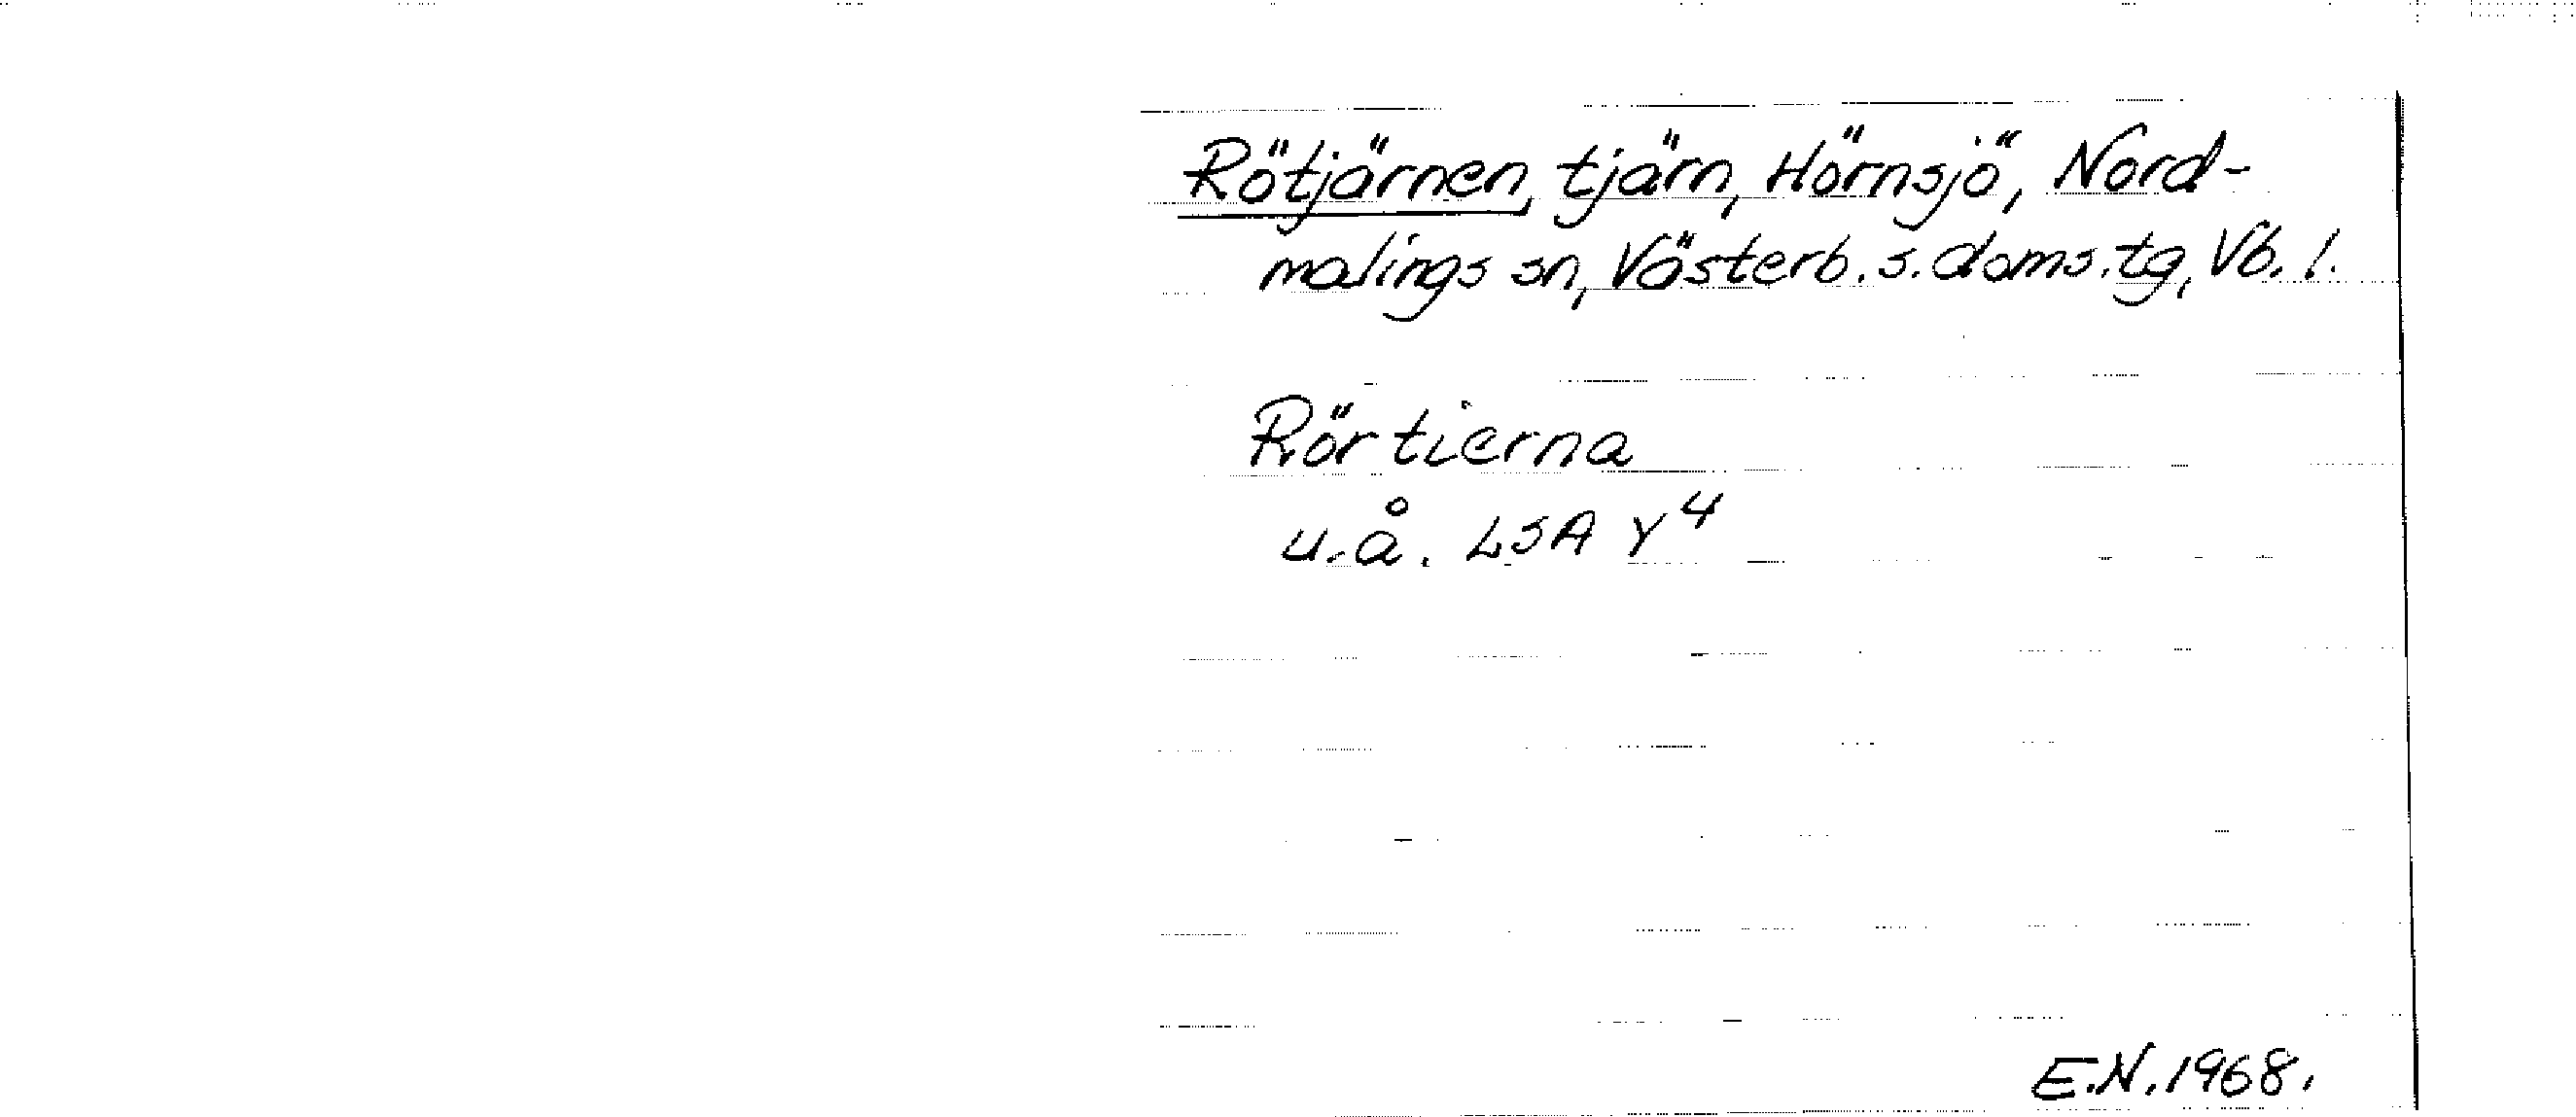 Rötjärnen, tjärn, Hörnsjö, Nord-
malings sn, Västerb. s. doms. tg, Vb. l.
Rörtierna
u.å. LSA Y⁴
E.N. 1968.